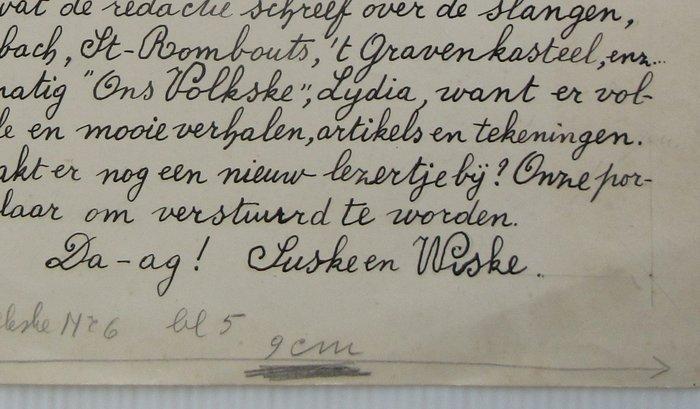 wat de redactie schreef over de slangen,
bach, St-Rombouts, 't Gravenkasteel, enz...
matig "Ons Volkske", Lydia, want er vol-
le en mooie verhalen, artikels en tekeningen.
akt er nog een nieuw lezertje bij? Onze por-
laar om verstuurd te worden.
Da-ag! Suske en Wiske.
lkske Nr 6 bl 5
9 cm